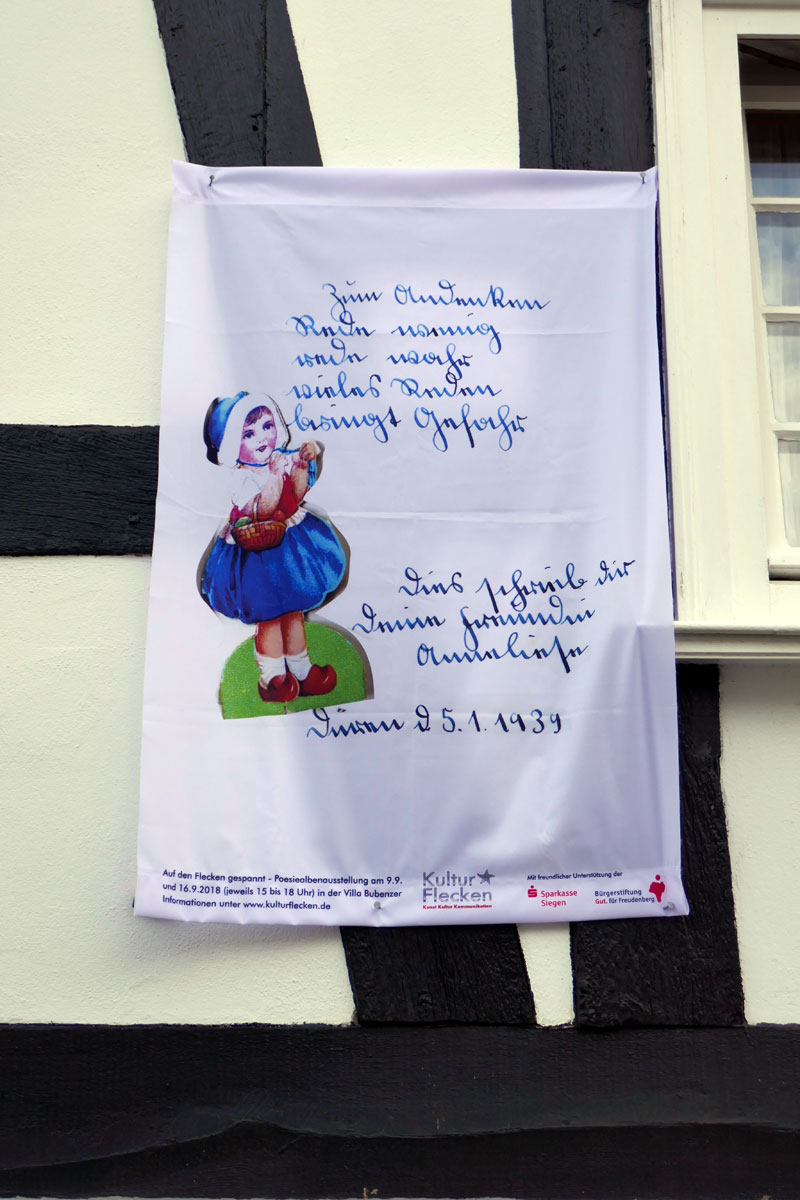 Zum Andenken
Rede wenig
rede wahr
vieles Reden
bringt Gefahr
Dies schrieb dir
Deine Freundin
Anneliese
Düren d 5.1.1939
Auf den Flecken gespannt - Poesiealbenausstellung am 9.9.
und 16.9.2018 (jeweils 15 bis 18 Uhr) in der Villa Bubenzer
Informationen unter www.kulturflecken.de
Kultur
Flecken
Kunst Kultur Kommunikation
Mit freundlicher Unterstützung der
Sparkasse
Siegen
Bürgerstiftung
Gut. für Freudenberg